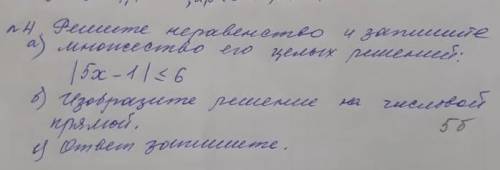 №4. Решите неравенство и запишите
а) множество его целых решений:
|5х-1| ≤ 6
б) Изобразите решение на числовой
прямой. 5б
с) Ответ запишите.